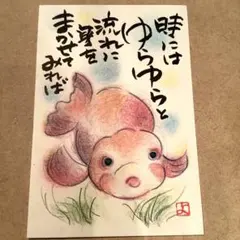 時には
ゆらゆらと
流れに
身を
まかせて
みれば